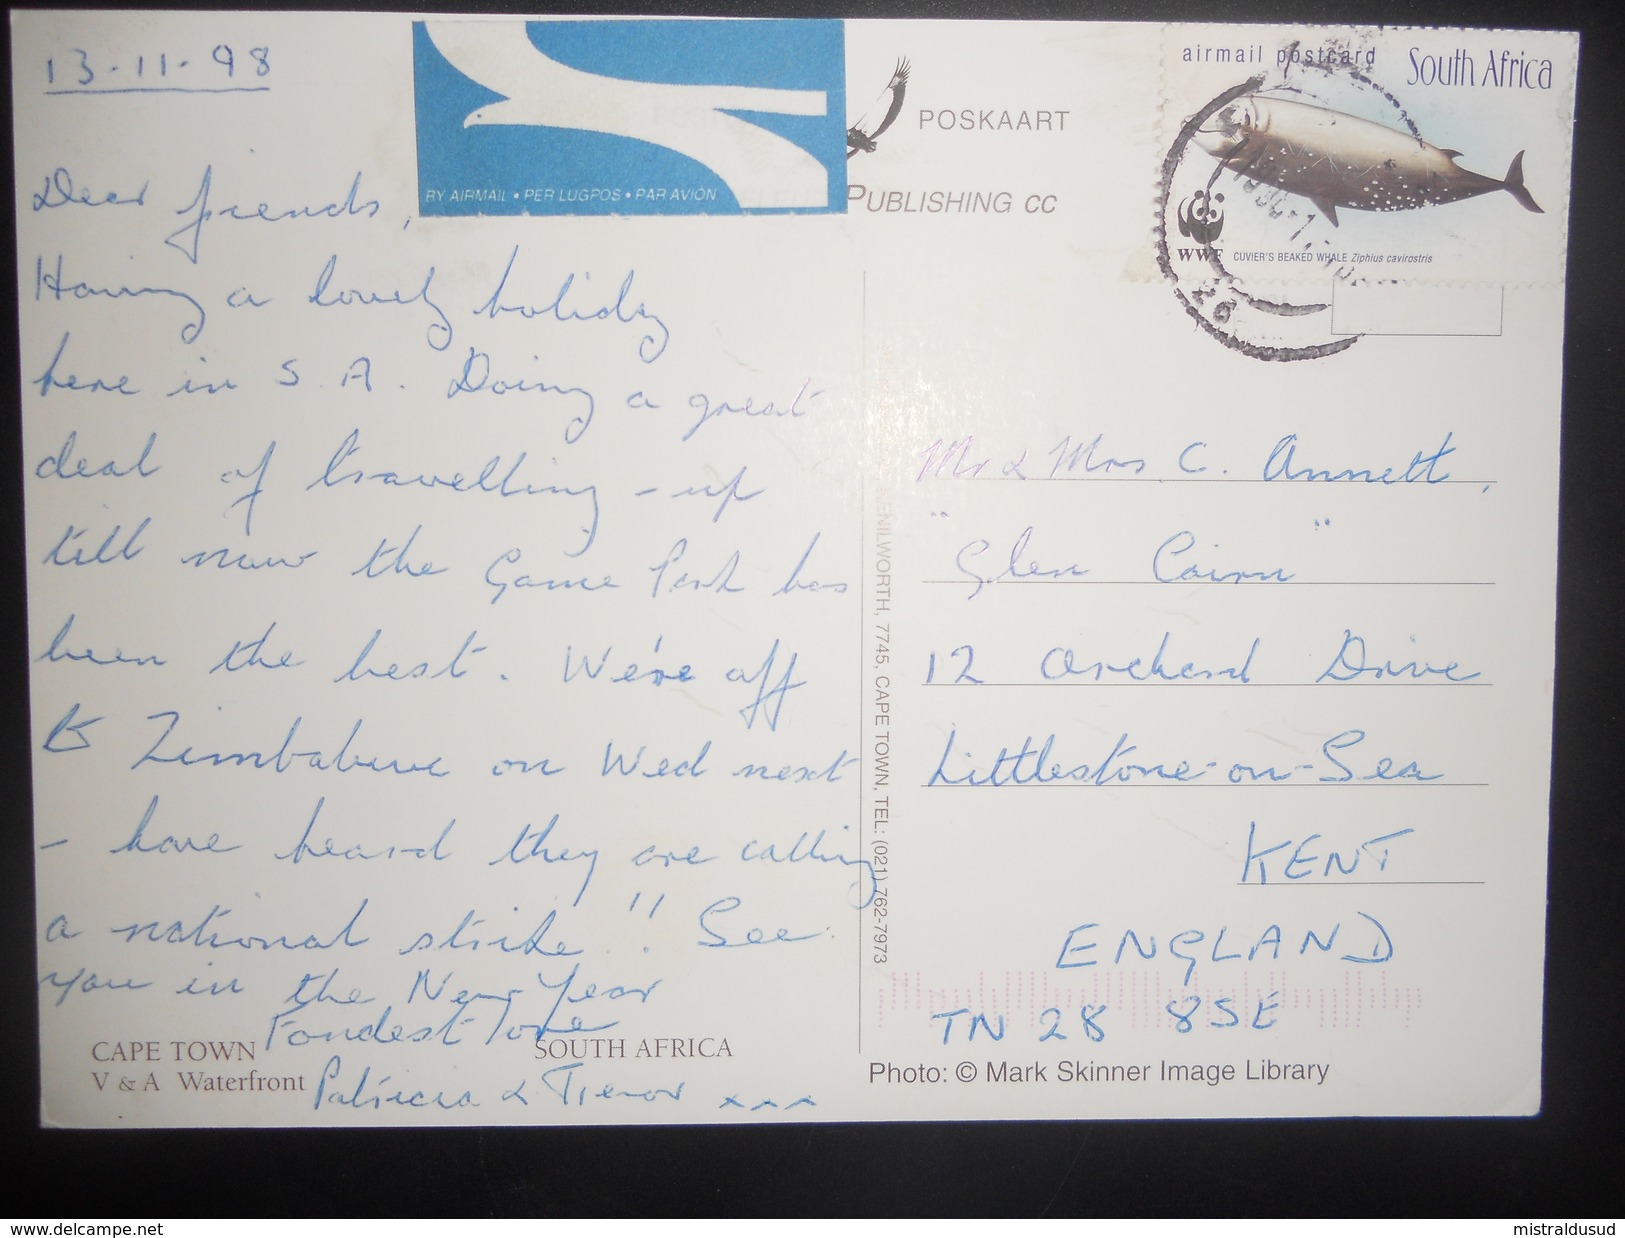 13-11-98
Dear friends,
Having a lovely holiday
here in S.A. Doing a great
deal of travelling - up
till now the Game Park has
been the best. We're off
to Zimbabwe on Wed next
- have heard they are calling
a national strike!! See
you in the New Year
Fondest Love
Patricia & Trevor xxx
CAPE TOWN SOUTH AFRICA
V & A Waterfront
BY AIRMAIL • PER LUGPOS • PAR AVION
POSKAART
PUBLISHING CC
airmail postcard South Africa
WWF CUVIER'S BEAKED WHALE Ziphius cavirostris
ENILWORTH, 7745, CAPE TOWN, TEL: (021) 762-7973
Mr & Mrs C. Annett,
"Glen Cairn"
12 Orchard Drive
Littlestone-on-Sea
KENT
ENGLAND
TN 28 8SE
Photo: © Mark Skinner Image Library
www.delcampe.net
mistraldusud